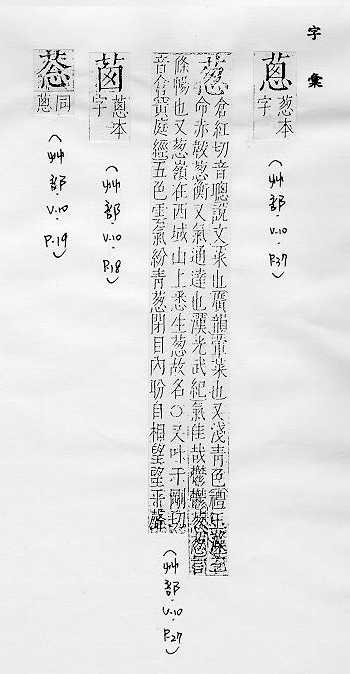 字彙
蔥
葱本字
(艸部.V.10.P.37)
葱
倉紅切音聰說文菜也廣韻葷菜也又淺青色禮玉藻三
命赤韍葱衡又氣通達也漢光武紀氣佳哉鬱鬱葱葱言
條暢也又葱嶺在西域山上悉生葱故名○又叶千剛切
音倉黃庭經五色雲氣紛青葱閉目內眄自相望
(艸部.V.10.P.27)
蔥本字
(艸部.V.10.P.18)
同蔥
(艸部.V.10.P.19)